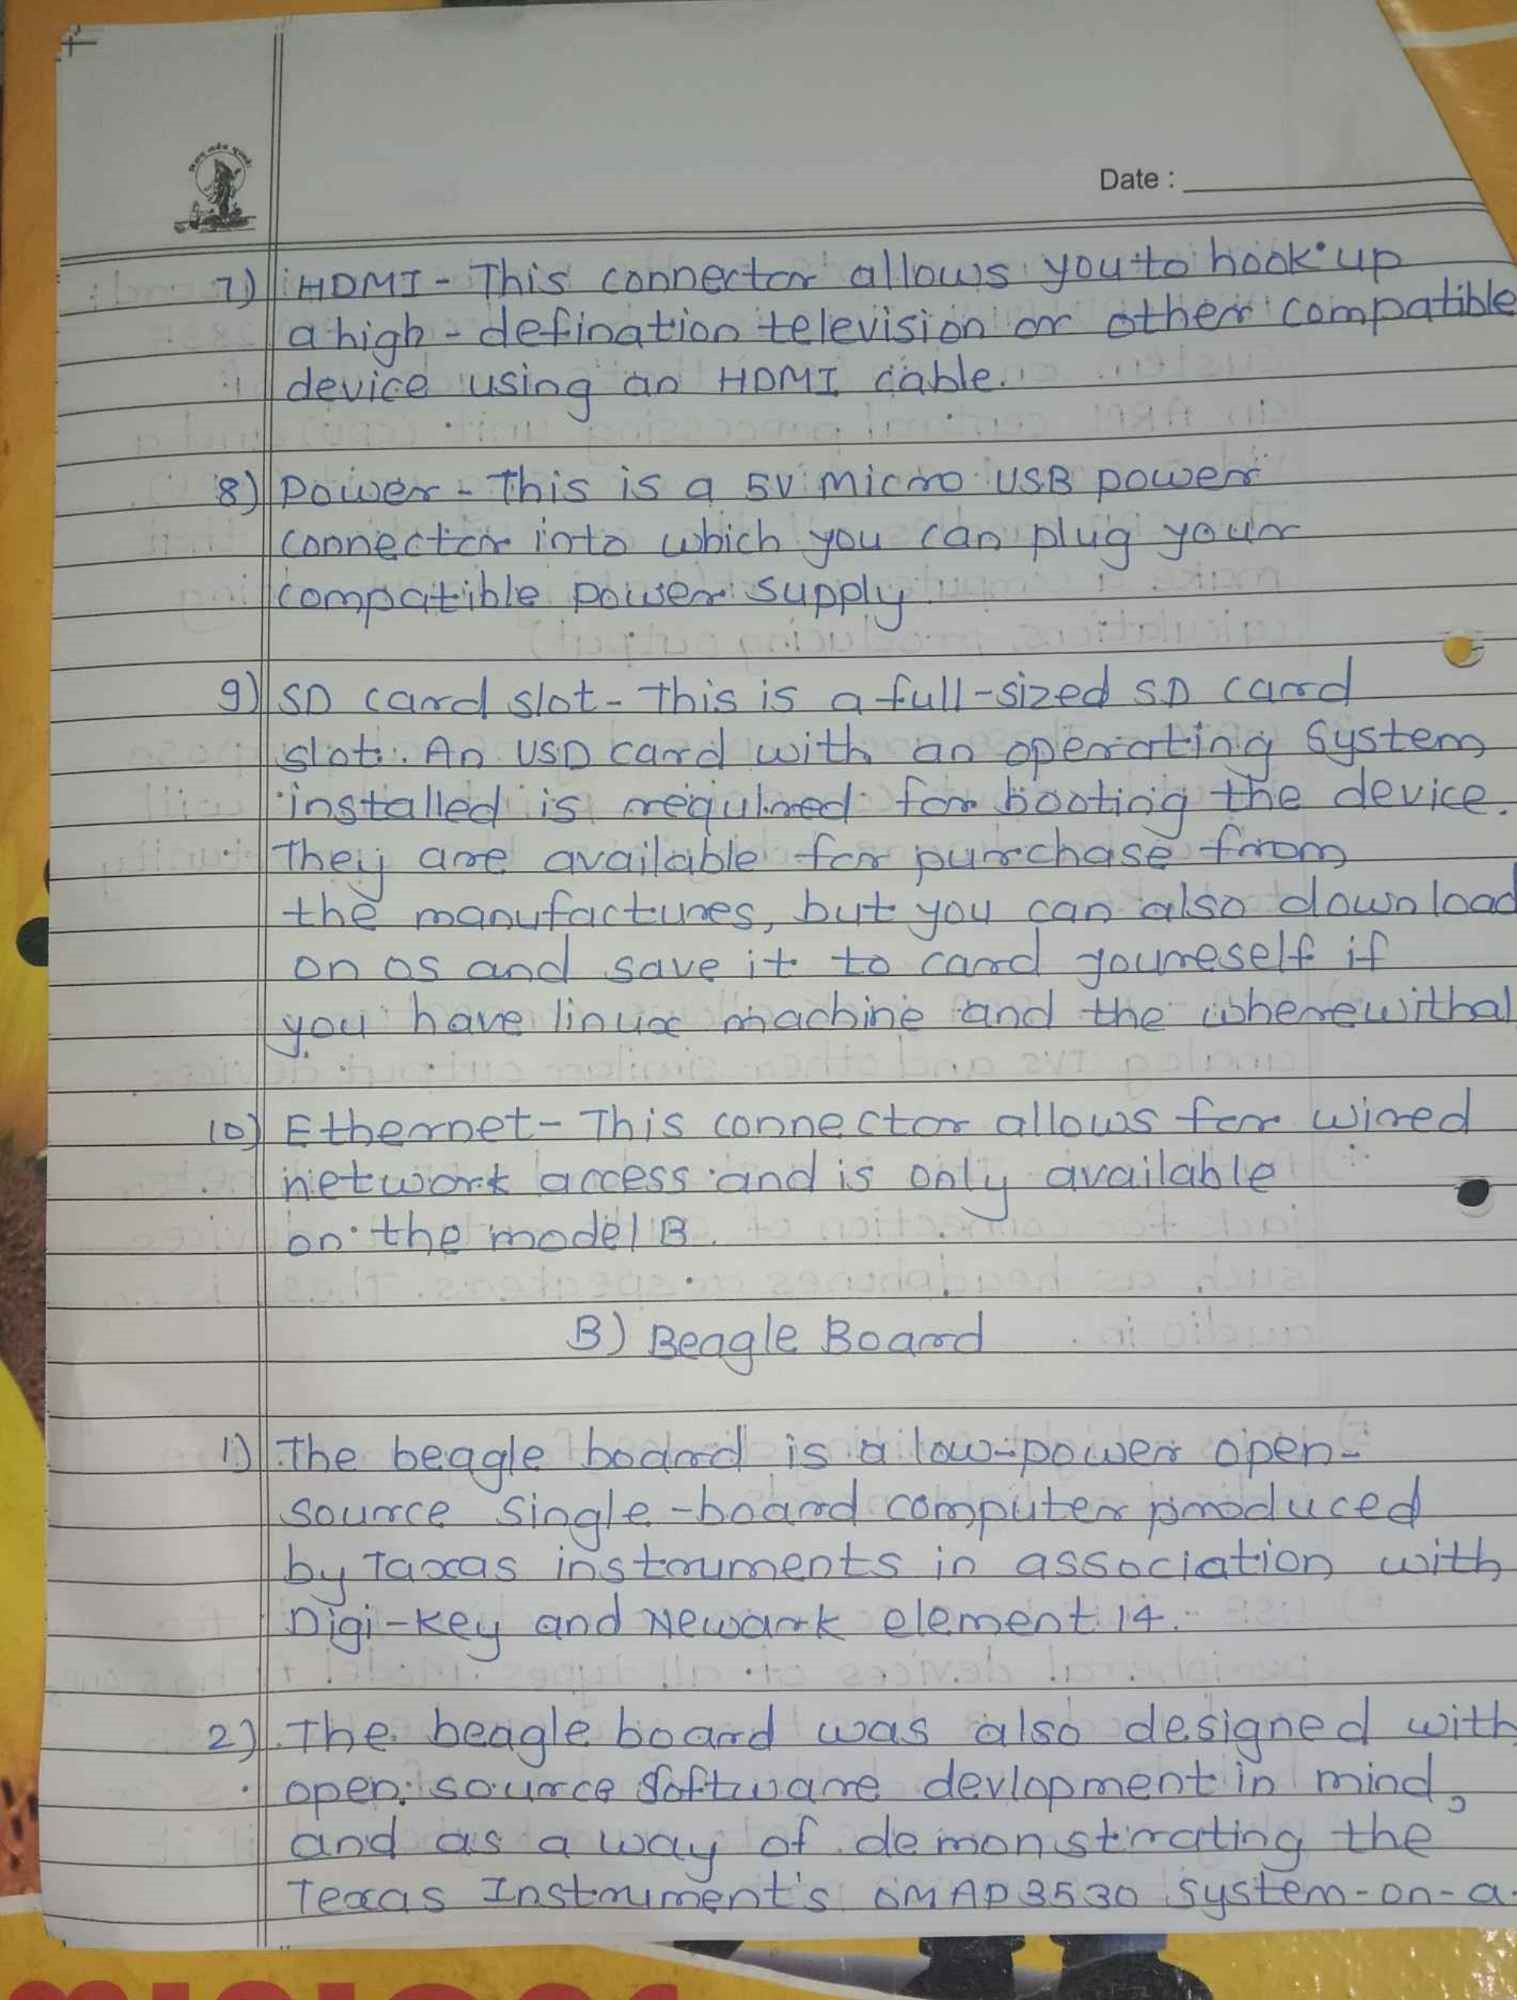 Date :
7) HDMI - This connector allows you to hook up
a high - defination television or other compatible
device using an HDMI cable.
8) Power - This is a 5V micro USB power
connector into which you can plug your
compatible power supply
9) SD card slot - This is a full-sized SD card
slot. An USD card with an operating System
installed is required for booting the device.
They are available for purchase from
the manufactures, but you can also download
on OS and save it to card youreself if
you have linux machine and the wherewithal
10) Ethernet - This connector allows for wired
network access and is only available
on the model B.
B) Beagle Board
1) The beagle board is a low-power open-
source single-board computer produced
by Taxas instruments in association with
Digi-key and Newark element 14.
2) The beagle board was also designed with
open source software devlopment in mind,
and as a way of demonstrating the
Texas Instrument's OMAP3530 system-on-a-